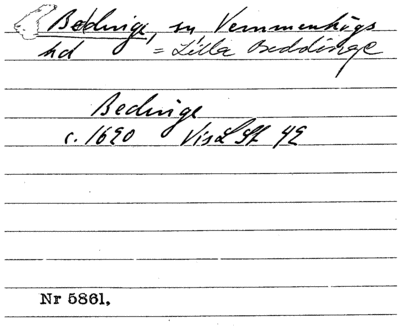 Beddinge, sn Vemmenhögs
hd = Lilla Beddinge
Bedinge
c. 1690 VisLSt 42
Nr 5861.